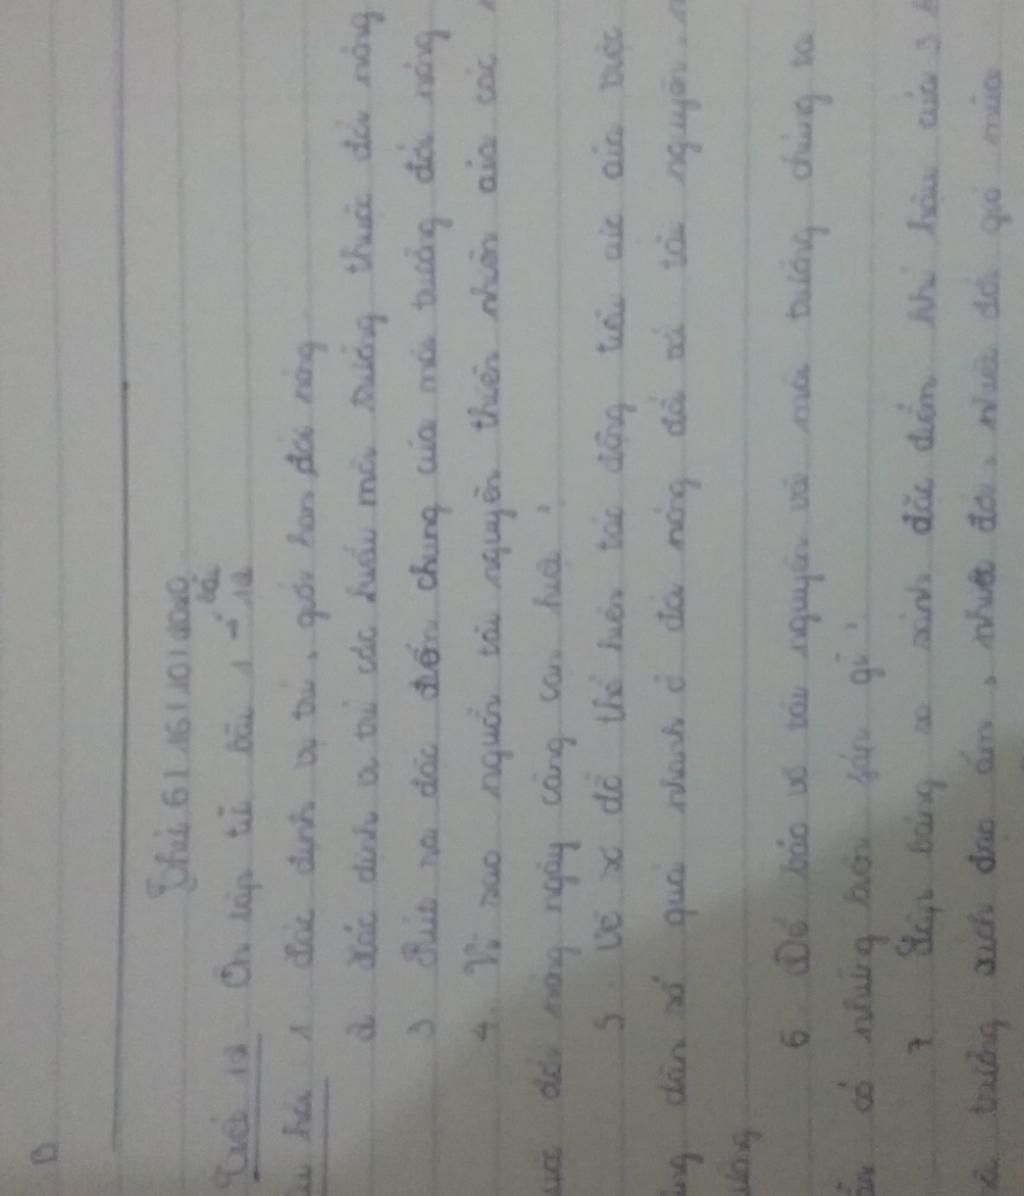 B
Thứ 6 / 16 / 10 / 2020
Tiết 12 Ôn tập từ bài 1 → bài 12
hỏi 1 Xác định vị trí, giới hạn đới nóng
2 Xác định vị trí các kiểu môi trường thuộc đới nóng
3 Rút ra đặc điểm chung của môi trường đới nóng
4. Vì sao nguồn tài nguyên thiên nhiên của các
đới nóng ngày càng cạn kiệt?
5. Vẽ sơ đồ thể hiện tác động tiêu cực của việc
dân số quá nhanh ở đới nóng đối với tài nguyên.
6. Để bảo vệ tài nguyên và môi trường chúng ta
có những biện pháp gì?
7. Lập bảng so sánh đặc điểm khí hậu của 3
trường xích đạo ẩm, nhiệt đới, nhiệt đới gió mùa